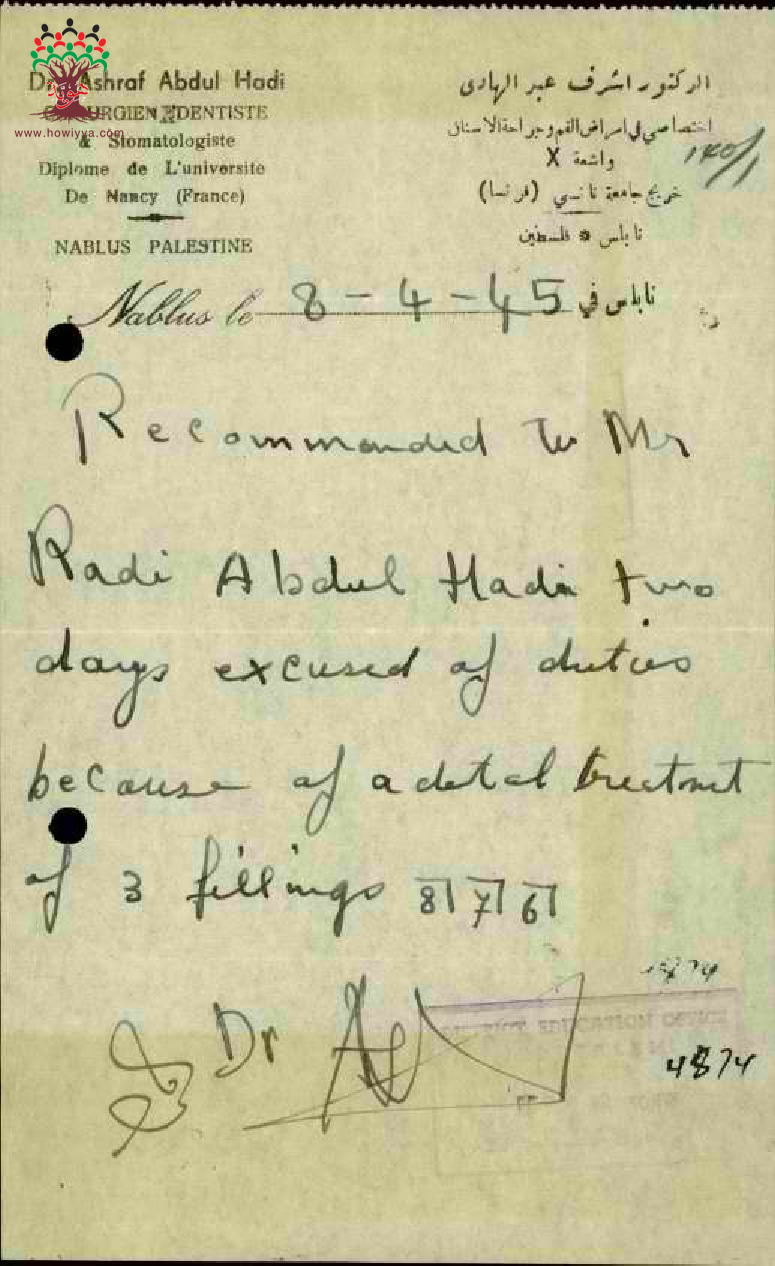 Dr. Ashraf Abdul Hadi
CHIRURGIEN DENTISTE
& Stomatologiste
Diplome de L'universite
De Nancy (France)
NABLUS PALESTINE
www.howiyya.com
الدكتور اشرف عبد الهادي
اختصاصي في امراض الفم وجراحة الاسنان
واشعة X
خريج جامعة نانسي (فرنسا)
نابلس * فلسطين
Nablus le 8-4-45 نابلس في
Recommanded to Mr
Radi Abdul Hadi two
days excused of duties
because of a detal treetmt
of 3 fillings 8| 7| 6|
Dr
EDUCATION OFFICE
4874